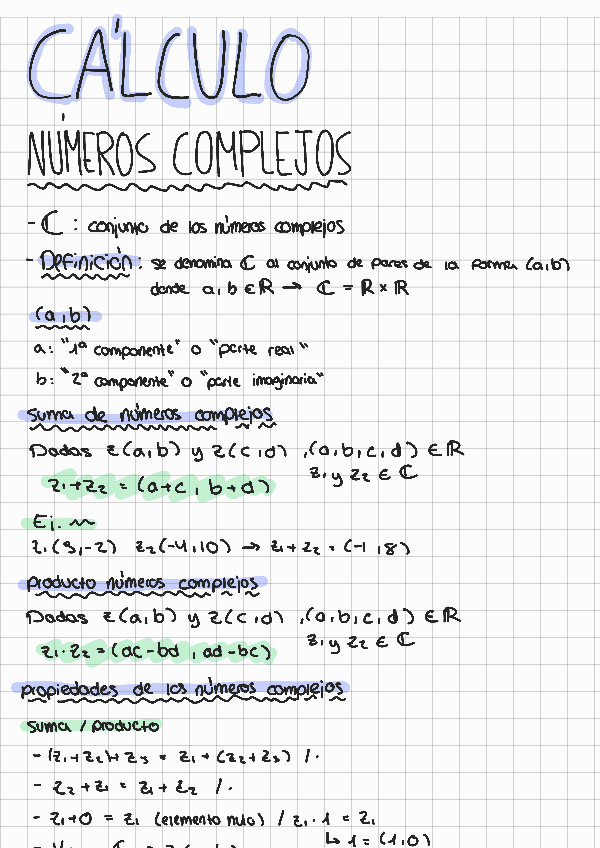 CÁLCULO
NÚMEROS COMPLEJOS
- ℂ : conjunto de los números complejos
- Definición: se denomina ℂ al conjunto de pares de la forma (a,b)
donde a,b ∈ ℝ → ℂ = ℝ × ℝ
(a,b)
a: "1ª componente" o "parte real"
b: "2ª componente" o "parte imaginaria"
suma de números complejos
Dados z(a,b) y z(c,d) ,(a,b,c,d) ∈ ℝ
z₁ y z₂ ∈ ℂ
z₁+z₂ = (a+c, b+d)
Ej.
z₁(3,-2) z₂(-4,10) → z₁+z₂ = (-1,8)
producto números complejos
Dados z(a,b) y z(c,d) ,(a,b,c,d) ∈ ℝ
z₁ y z₂ ∈ ℂ
z₁·z₂ = (ac-bd, ad-bc)
propiedades de los números complejos
suma / producto
- (z₁+z₂)+z₃ = z₁+(z₂+z₃) / ·
- z₂+z₁ = z₁+z₂ / ·
- z₁+0 = z₁ (elemento nulo) / z₁·1 = z₁
↳ 1 = (1,0)